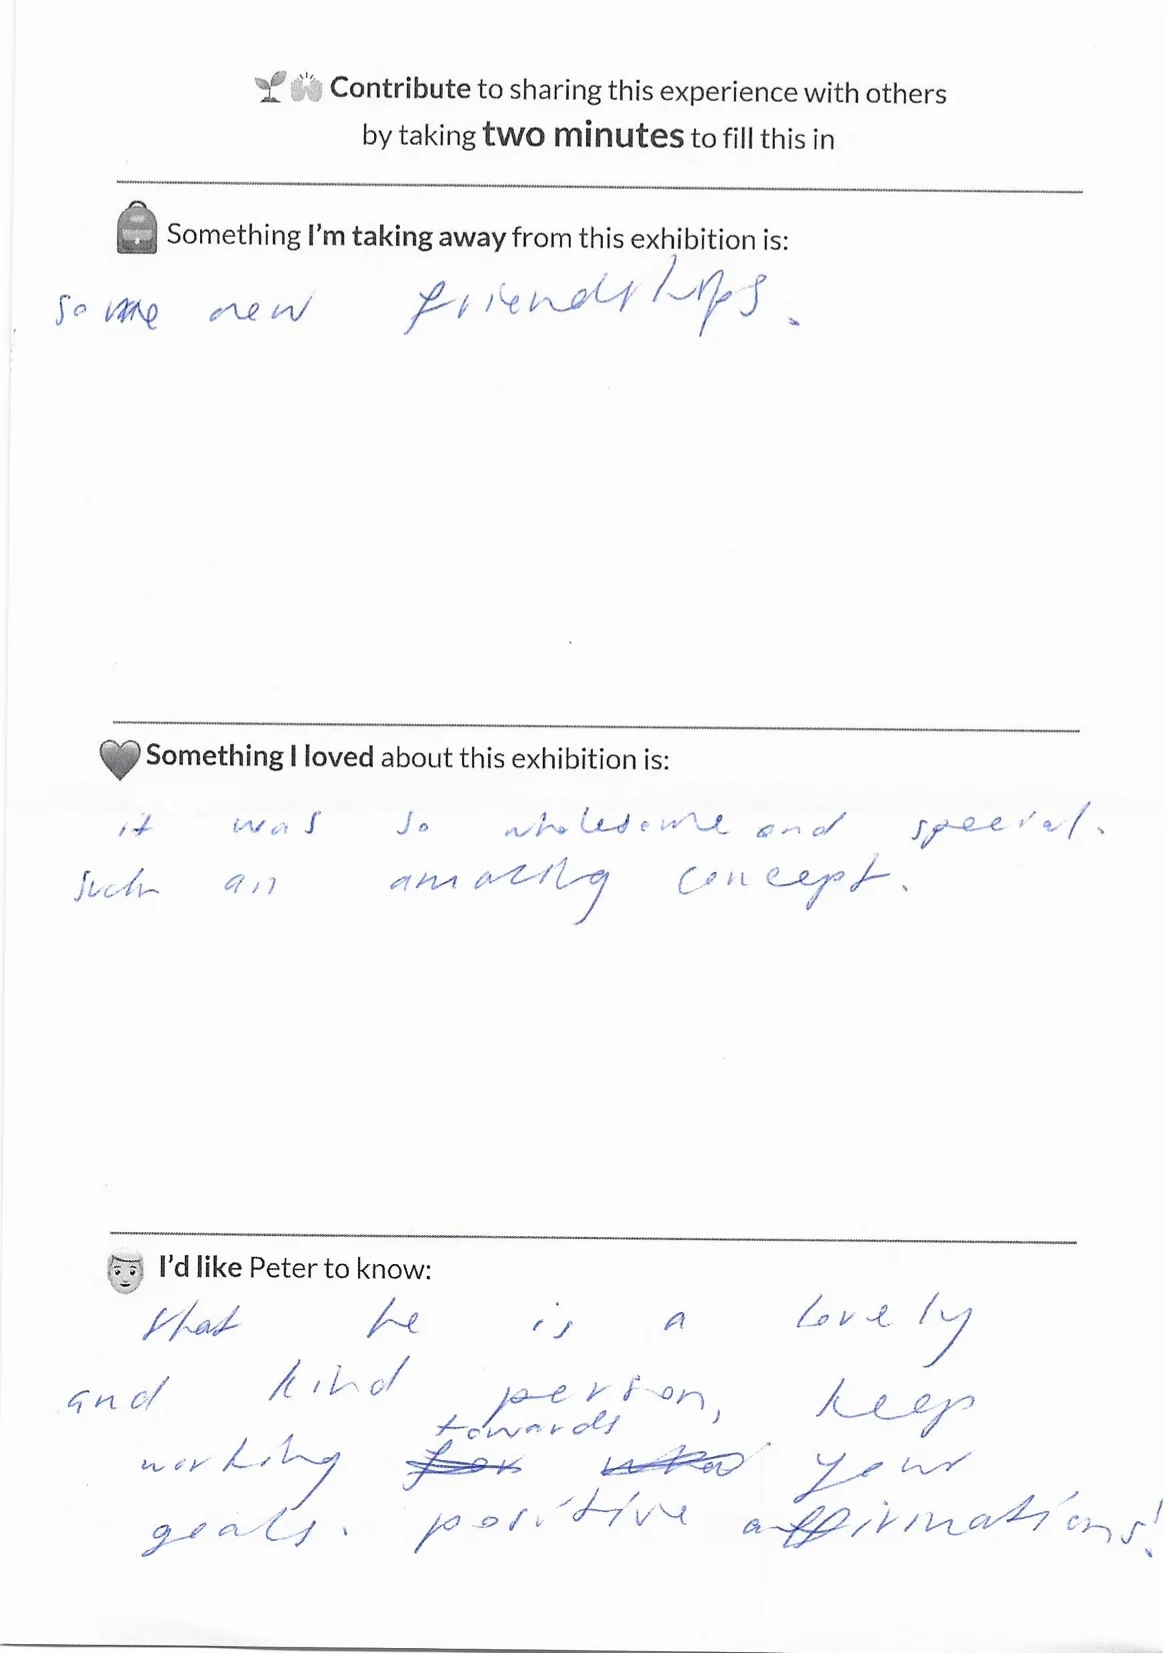 Contribute to sharing this experience with others
by taking two minutes to fill this in
Something I'm taking away from this exhibition is:
some new friendships.
Something I loved about this exhibition is:
it was so wholesome and special.
such an amazing concept.
I'd like Peter to know:
that he is a lovely
and kind person, keep
towards
working for your
goals. positive affirmations!